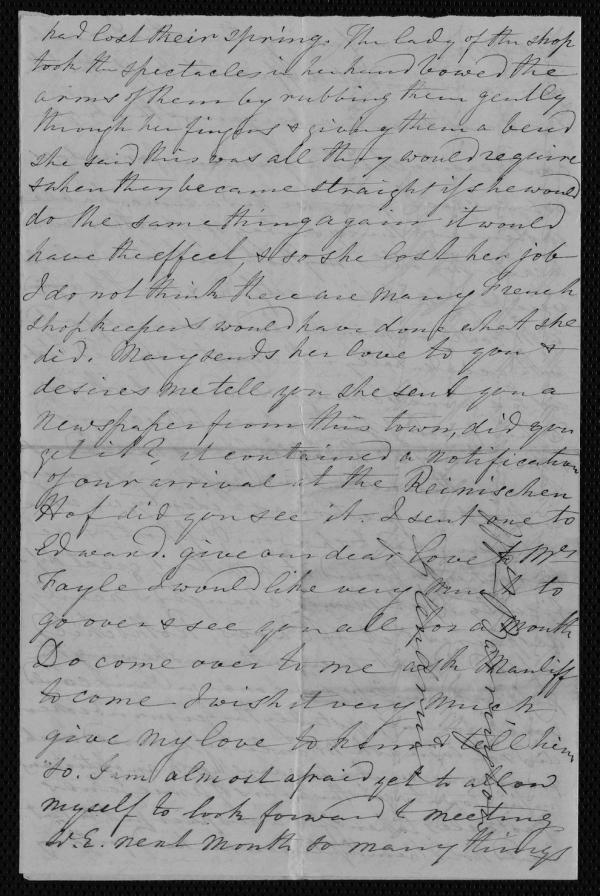 had lost their spring. The lady of the shop
took the spectacles in her hand bowed the
arms of them by rubbing them gently
through her fingers & giving them a bend
she said this was all they would require
& when they became straight if she would
do the same thing again it would
have the effect, & so she lost her job
I do not think there are many French
shopkeepers would have done what she
did. Mary sends her love to you &
desires me tell you she sent you a
newspaper from this town, did you
get it?, it contained a notification
of our arrival at the Reinischen
Hof did you see it. I sent one to
Edward. give our dear love to Mrs
Fayle I would like very much to
go over & see you all for a month
Do come over to me ask
to come I wish it very much
give my love to him & tell him
so. I am almost afraid yet to allow
myself to look forward to meeting
W.E. next month so many things